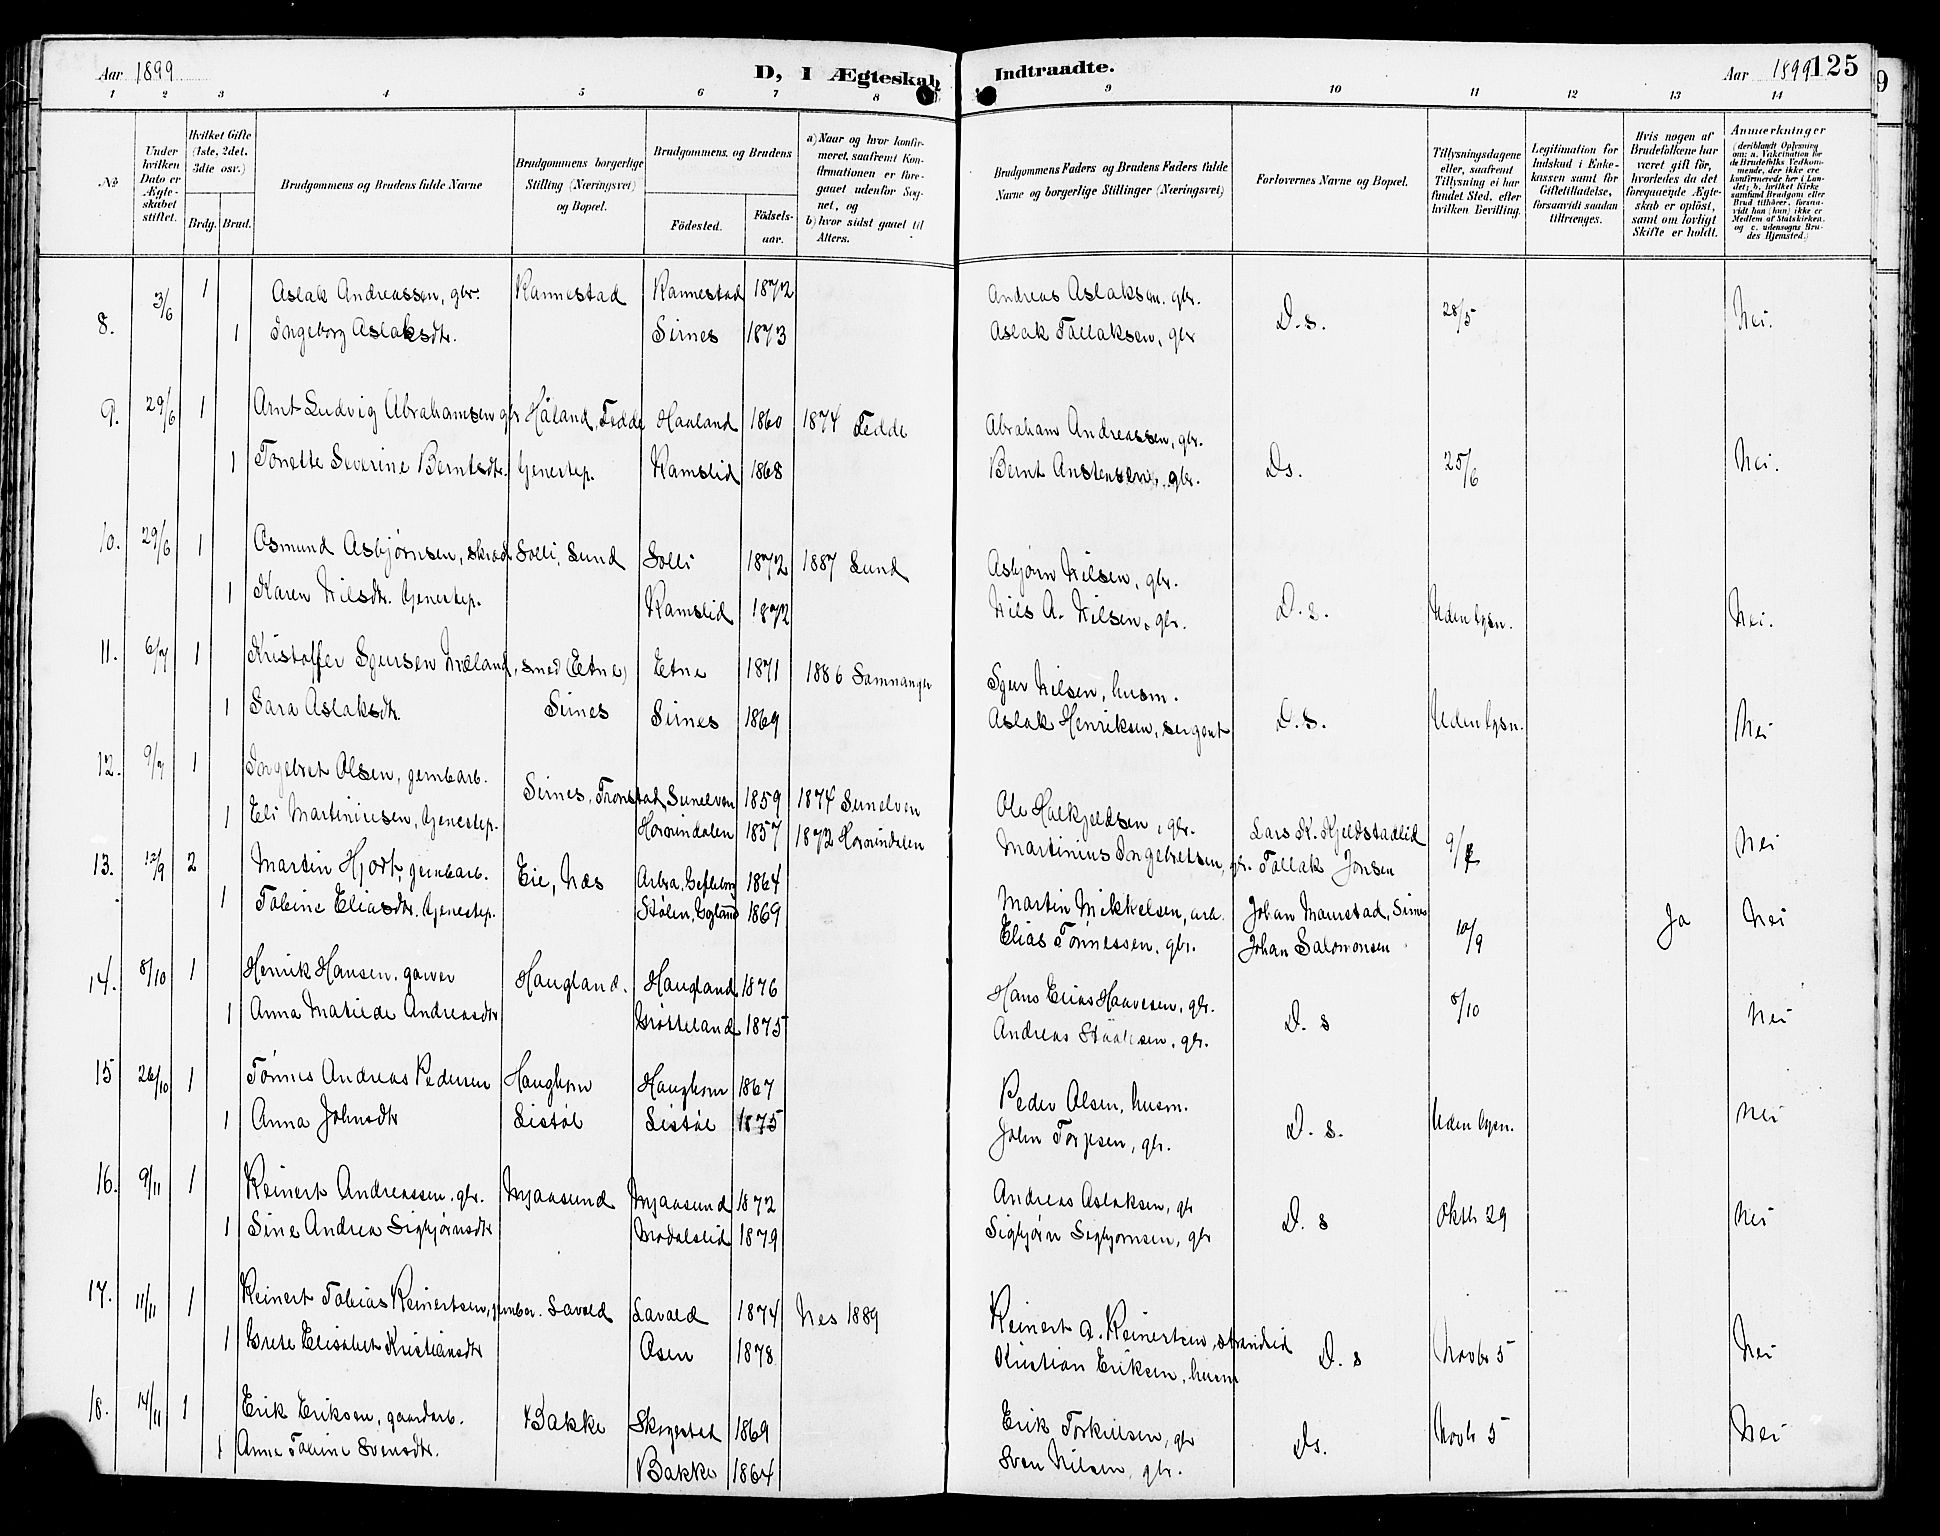 Aar 1899
D, I Ægteskab
Indtraadte.
Aar 1899
125
1 2 3 4 5 6 7 8 9 10 11 12 13 14
No
Under hvilken Dato er Ægteskabet stiftet.
Hvilket Gifte (1ste, 2det, 3die osv.)
Brdg. Brud.
Brudgommens og Brudens fulde Navne
Brudgommens borgerlige Stilling (Næringsvei) og Bopæl.
Brudgommens og Brudens
Födested.
Födsels-aar.
a) Naar og hvor konfirmeret, saafremt Konfirmationen er foregaaet udenfor Sognet, og
b) hvor sidst gaaet til Alters.
Brudgommens Faders og Brudens Faders fulde Navne og borgerlige Stillinger (Næringsvei)
Forlovernes Navne og Bopæl.
Tillysningsdagene eller, saafremt Tillysning ei har fundet Sted, efter hvilken Bevilling.
Legitimation for Indskud i Enkekassen samt for Giftetilladelse, forsaavidt saadan tiltrænges.
Hvis nogen af Brudefolkene har været gift för, hvorledes da det foregaaende Ægteskab er oplöst, samt om lovligt Skifte er holdt.
Anmærkninger (deriblandt Oplysning om: a. Vakcination for de Brudefolks Vedkommende, der ikke ere konfirmerede her i Landet; b. hvilket Kirkesamfund Brudgom eller Brud tilhører, forsaavidt han (hun) ikke er Medlem af Statskirken, og c. udensogns Brudes Hjemsted.)
8. 3/6 1 Aslak Andreassen, gbr. Rannestad Rannestad 1872 Andreas Aslaksen, gbr. D.s. 28/5 Nei.
1 Ingeborg Aslaksdtr. Sirnes 1873 Aslak Tallaksen, gbr
9. 29/6 1 Arnt Ludvig Abrahamsen gbr Håland, Fedde Haaland 1860 1874 Fedde Abraham Andreassen, gbr. Ds. 25/6 Nei.
1 Tonette Severine Berntsdtr. tjenestep. Ramslid 1868 Bernt Anstensen, gbr.
10. 29/6 1 Osmund Asbjørnsen, skræd. Solli, Lund Solli 1872 1887 Lund Asbjørn Nilsen, gbr. D.s. Uden lysn. Nei.
1 Karen Nilsdtr. tjenestep. Ramslid 1872 Nils A. Nilsen, gbr.
11. 6/7 1 Kristoffer Sjursen Mæland, smed (Etne) Etne 1871 1886 Samnanger Sjur Nilsen, husm. D.s. Uden lysn. Nei
1 Sara Aslaksdtr. Sirnes Sirnes 1869 Aslak Henriksen, sergent
12. 9/7 1 Ingebret Olsen, jernbarb. Sirnes, Tronstad Sunelven 1859 1874 Sunelven Ole Halkjeldsen, gbr. Lars K. Kjeldstadlid 9/7 Nei
1 Eli Martiniusen, tjenestep. Hornindalen 1857 1872 Hornindalen Martinius Ingebretsen, gbr. Tallak Jonsen
13. 12/9 2 Martin Hjort, jernbarb. Eie, Næs Arbra, Gefleborg 1864 Martin Mikkelsen, arb. Johan Maurstad, Sirnes 10/9 Ja Nei
1 Tobine Eliasdtr. tjenestep. Stølen, Egland 1869 Elias Tønnessen, gbr. Johan Salomonsen
14. 8/10 1 Henrik Hansen, garver Haugland. Haugland 1876 Hans Elias Haavesen, gbr. D. s 8/10 Nei
1 Anna Matilde Andreasdtr Grøtteland 1875 Andreas gbr.
15 26/10 1 Tønnes Andreas Pedersen Haughom Haughom 1867 Peder Olsen, husm. D. s. Uden lysn. Nei
1 Anna Johnsdtr Listøl Listøl 1875 John Torjesen, gbr.
16. 9/11 1 Reinert Andreassen, gbr. Mjaasund Mjaasund 1872 Andreas Aslaksen, gbr D. s Oktb 29 Nei
1 Sine Andrea Sigbjørnsdtr Modalslid 1879 Sigbjørn Sigbjørnsen, gbr
17. 11/11 1 Reinert Tobias Reinertsen, jernbar. Lavold Lavold 1874 Nes 1889 Reinert A. Reinertsen, strandsid D. s Novbr 5 Nei
1 Grete Elisabet Kristiansdtr Osen 1878 Kristian Eriksen, husm
18. 14/11 1 Erik Eriksen, gaardarb. Bakke Skogestad 1869 Erik Torkelsen, gbr Ds. Novbr 5 Nei
1 Anne Tobine Svensdtr. Bakke 1864 Sven Nilsen, gbr.